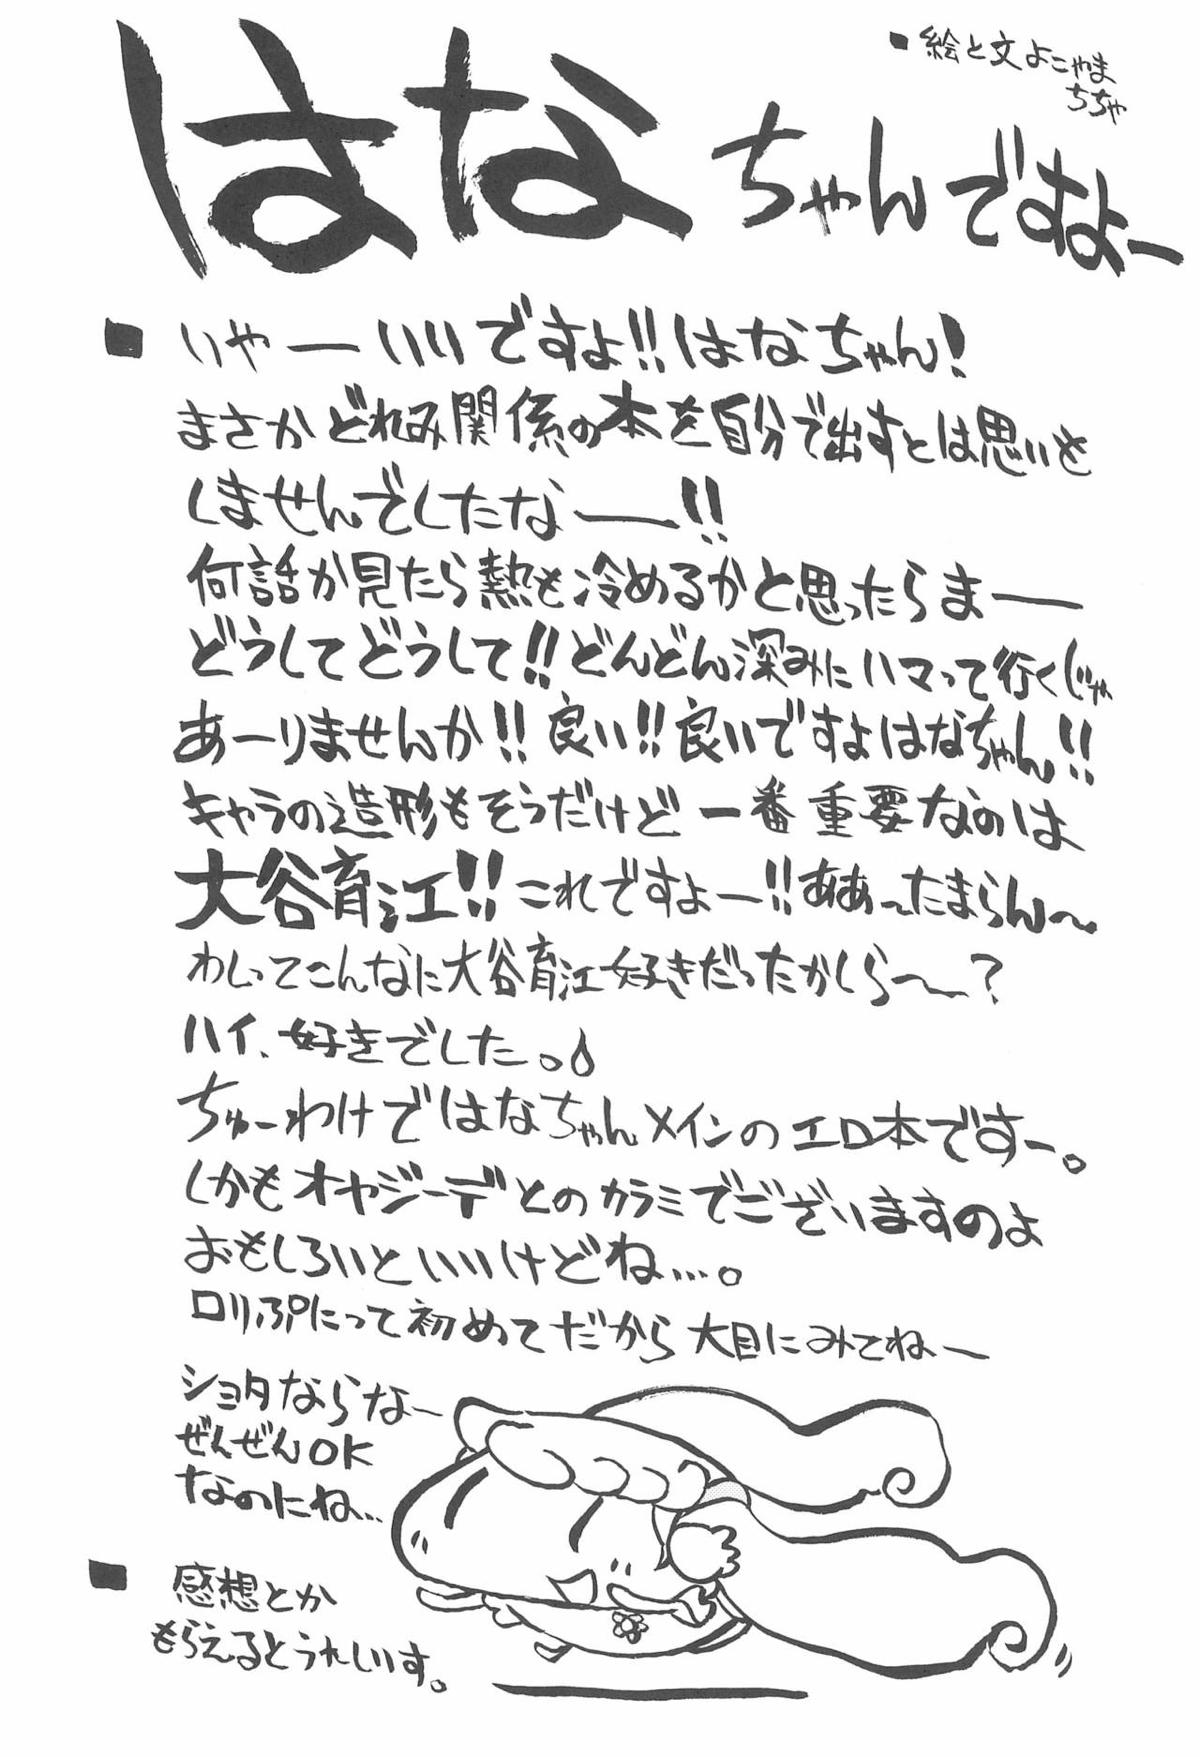 ■絵と文よこやま
ちちゃ
はなちゃんですよー
■いやーいいですよ!!はなちゃん!
まさかどれみ関係の本を自分で出すとは思いも
しませんでしたなー!!
何話か見たら熱も冷めるかと思ったらまー
どうしてどうして!!どんどん深みにハマって行くじゃ
あーりませんか!!良い!!良いですよはなちゃん!!
キャラの造形もそうだけど一番重要なのは
大谷育江!!これですよー!!ああ～たまらん～
わしってこんなに大谷育江好きだったかしら～～?
ハイ、好きでした。
ちゅーわけではなちゃんメインのエロ本ですー。
しかもオヤジーデとのカラミでございますのよ
おもしろいといいけどね…。
ロリぷにって初めてだから大目にみてねー
ショタならなー
ぜんぜんOK
なのにね…
■感想とか
もらえるとうれしいす。